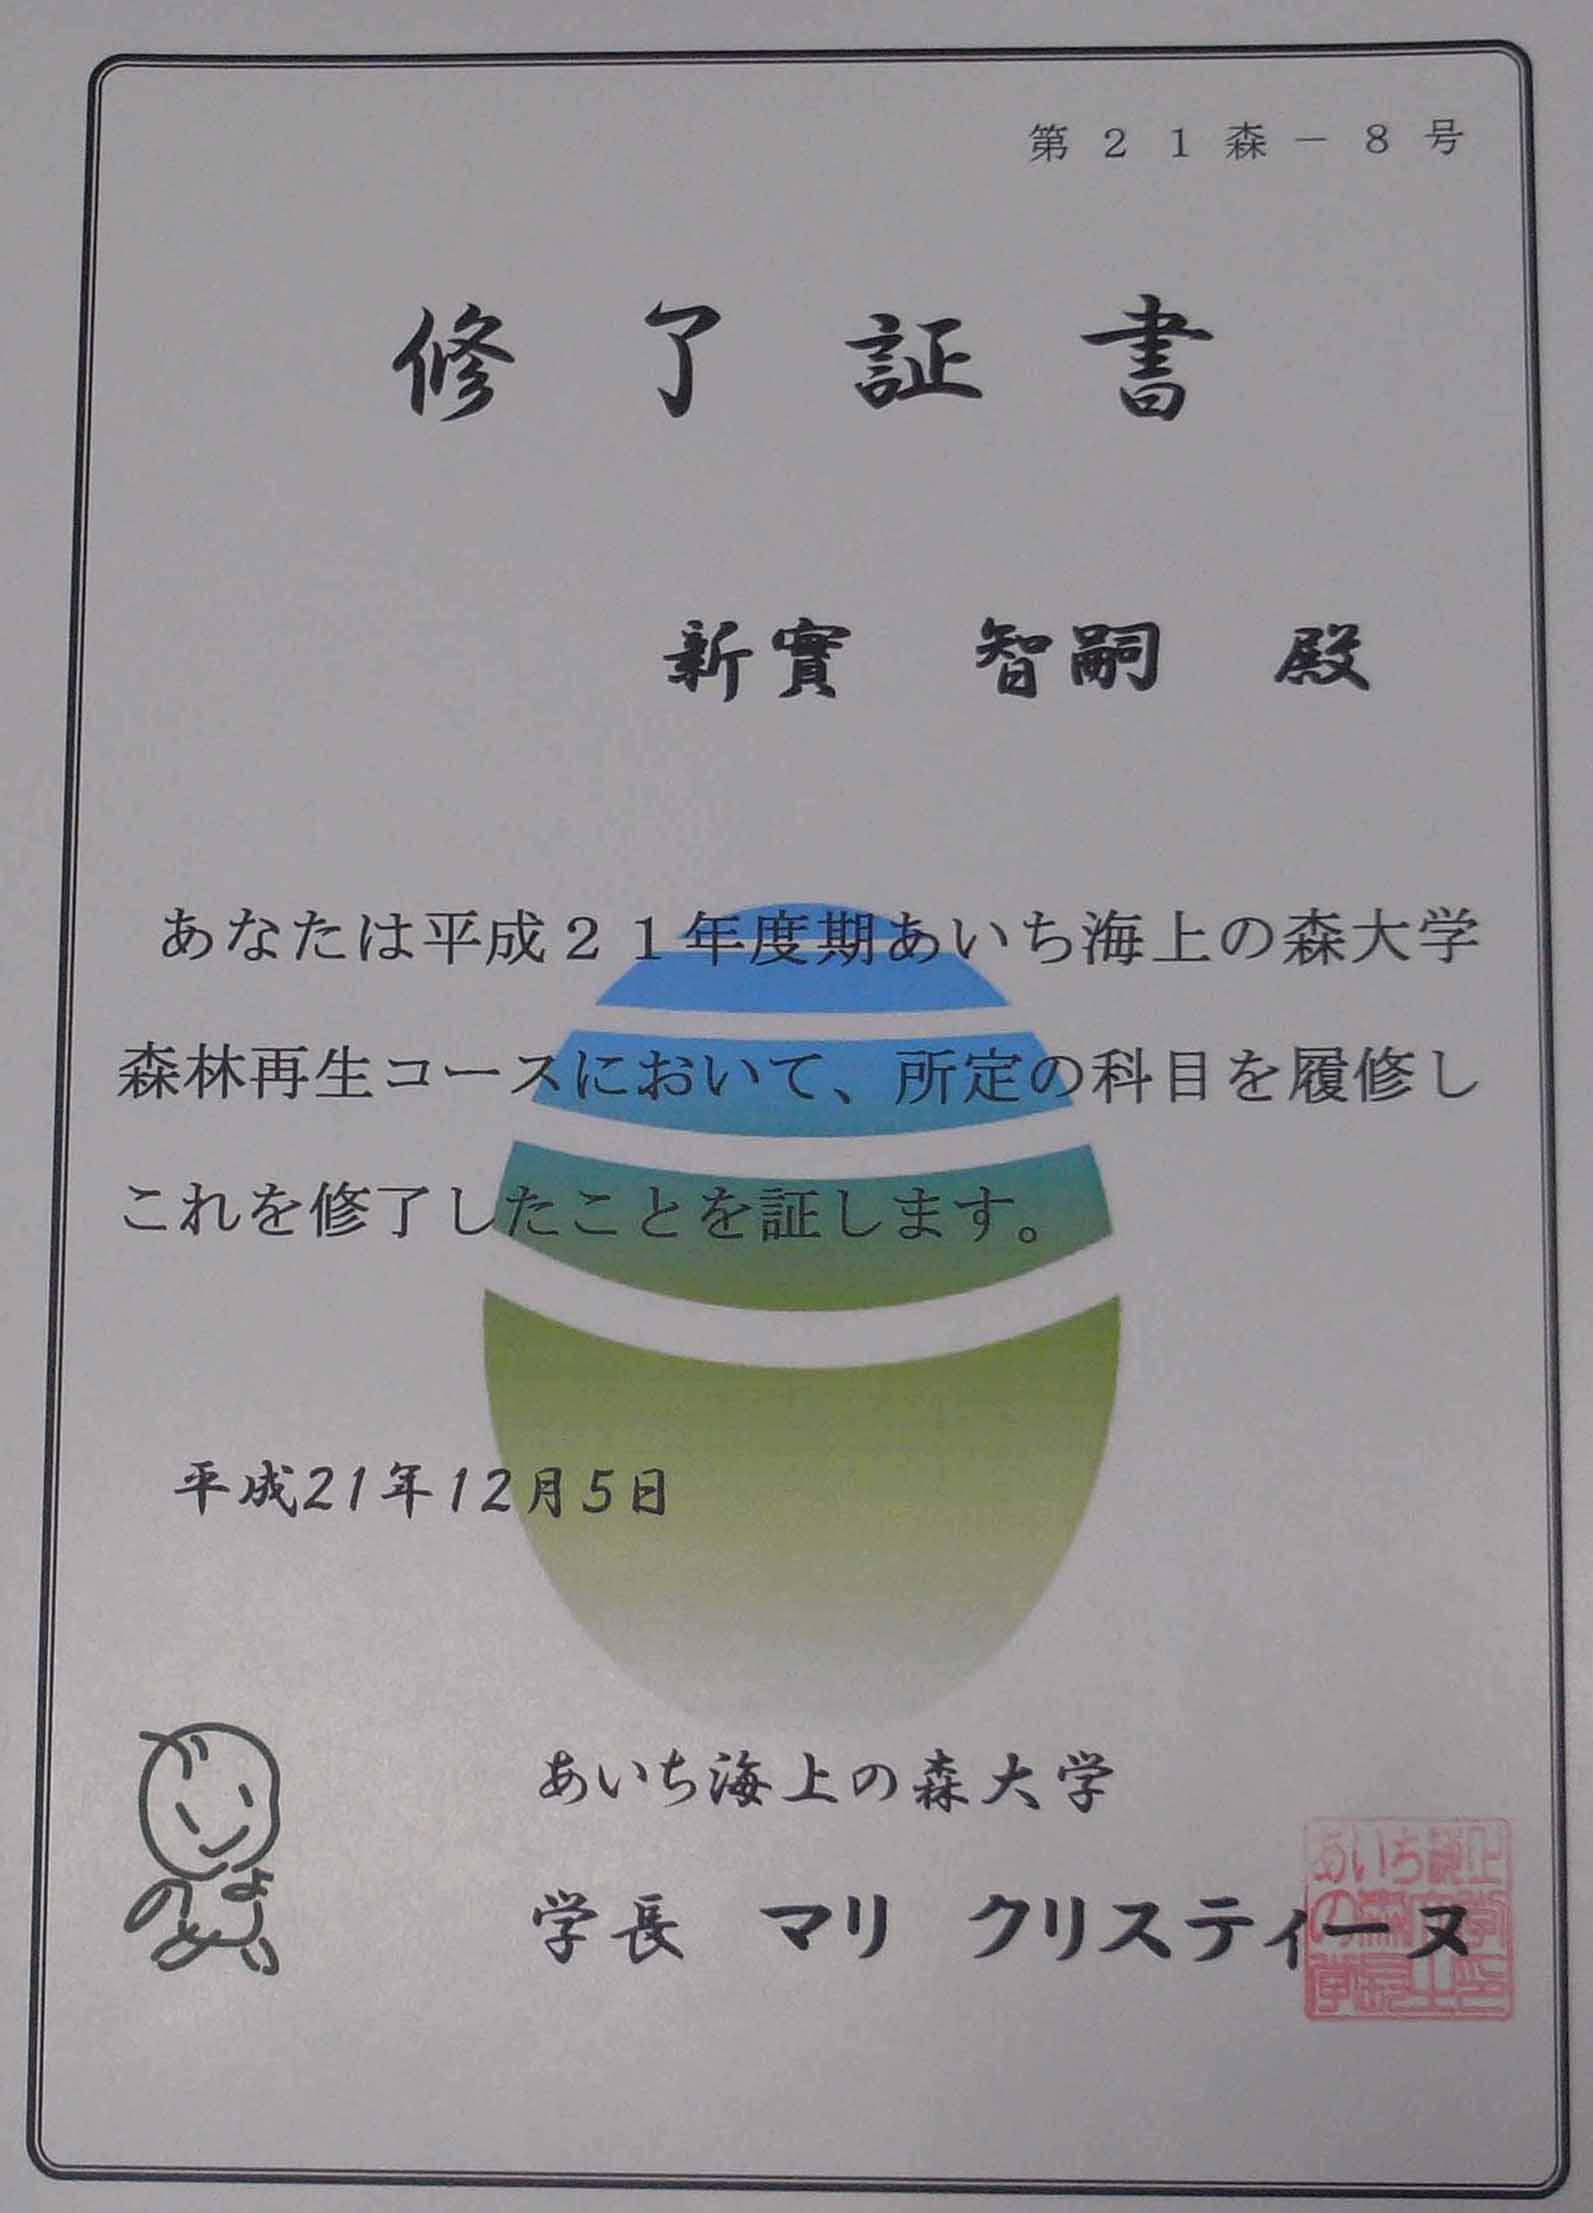 第２１森－８号
修了証書
新實　智嗣　殿
あなたは平成２１年度期あいち海上の森大学
森林再生コースにおいて、所定の科目を履修し
これを修了したことを証します。
平成21年12月5日
あいち海上の森大学
学長　マリ　クリスティーヌ